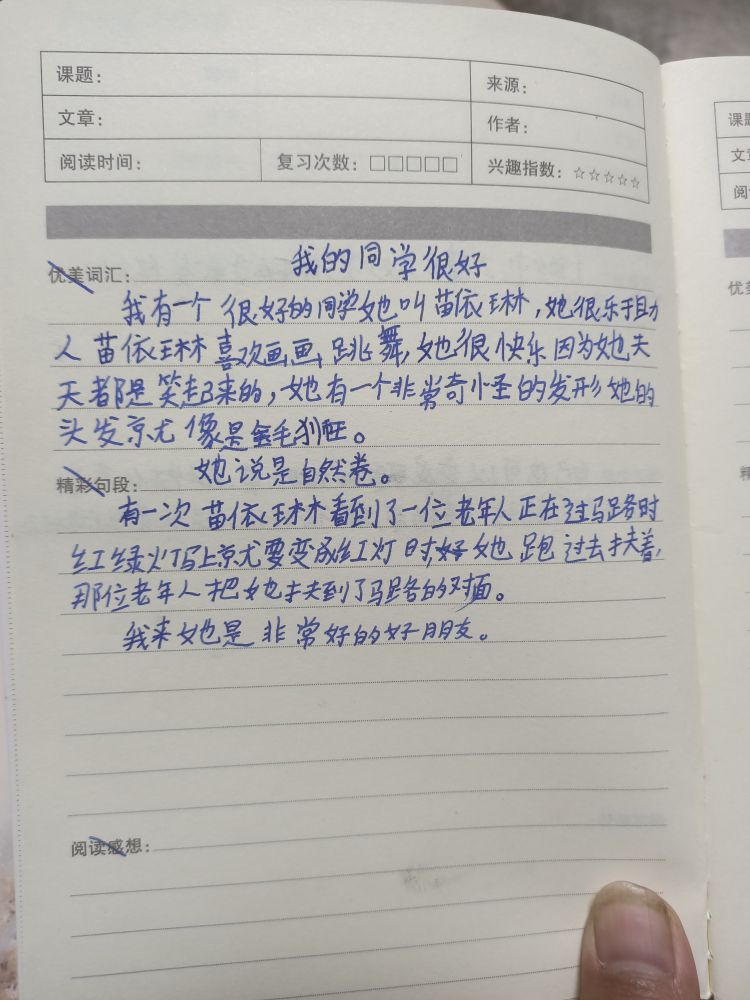 课题：
来源：
文章：
作者：
阅读时间：
复习次数：□□□□□
兴趣指数：☆☆☆☆☆
优美词汇：
我的同学很好
我有一个很好的同学她叫苗依琳，她很乐于助
人苗依琳喜欢画画、跳舞，她很快乐因为她天
天都是笑起来的，她有一个非常奇怪的发形她的
头发就像是金毛狮旺。
她说是自然卷。
精彩句段：
有一次苗依琳看到了一位老年人正在过马路时
红绿灯马上就要变成红灯时，她跑过去扶着，
那位老年人把她扶到了马路的对面。
我来她是非常好的好朋友。
阅读感想：
课题
文章
阅
优美
精